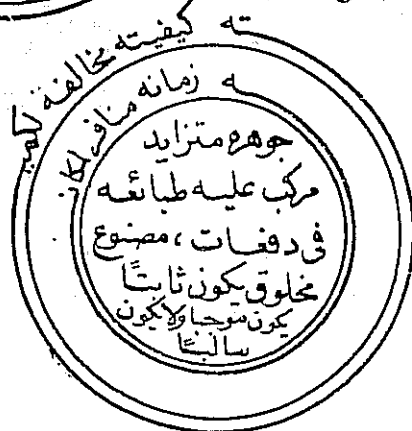 ته كيفيته مخالفة لكمي
ـه زمانه منافر لمكانـ
جوهره متزايد
مركب عليه طبائعه
فى دفعات، مصنوع
مخلوق يكون ثابتًا
يكون موجبا ولا يكون
سالبًا